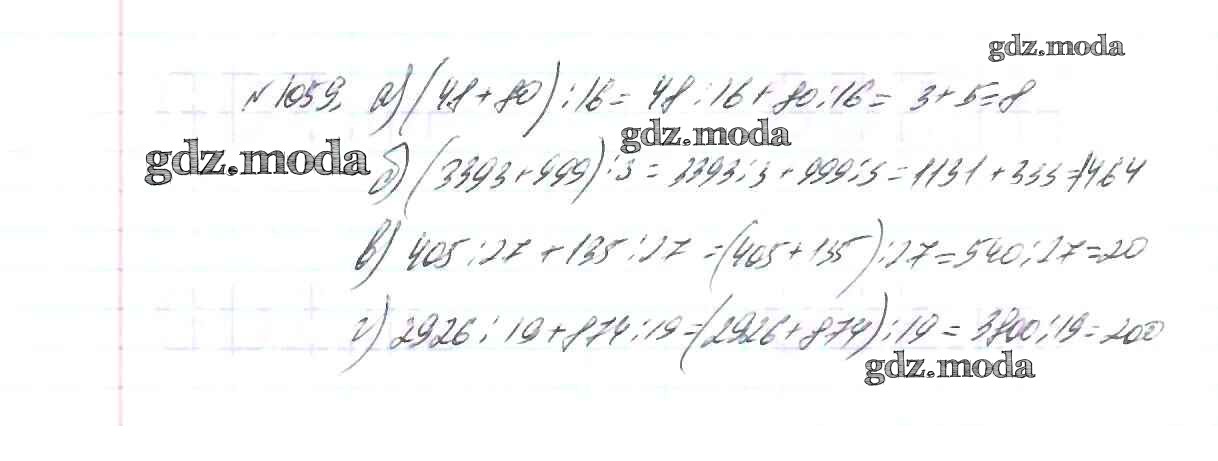 gdz.moda
№1059. а) (48+80):16= 48:16+80:16= 3+5=8
gdz.moda gdz.moda
б) (3393+999):3 = 3393:3+999:3=1131+333=1464
в) 405:27+135:27=(405+135):27=540:27=20
г) 2926:19+874:19=(2926+874):19=3800:19=200
gdz.moda